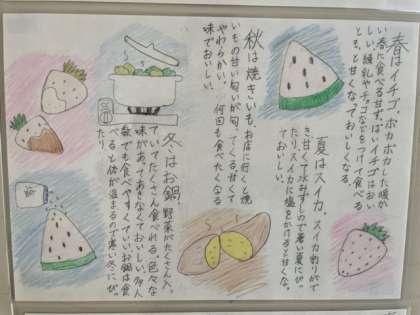 春はイチゴ。ポカポカした暖か
い春に食べる甘ずっぱいイチゴはおい
しい。練乳やチョコなどをつけて食べる
ともっと甘くなっておいしくなる。
夏はスイカ。スイカ割りがで
き、甘くて水みずしいので暑い夏にぴっ
たり。スイカに塩をかけると甘くな
っておいしい。
秋は焼きいも。お店に行くと焼
いもの甘い匂いが匂ってくる。甘くて
やわらかい。何回も食べたくなる
味でおいしい。
冬はお鍋。野菜がたくさん入っ
ていてたくさん食べれる。色々な
味があってあきなくておいしい。少人
数でも食べやすくていい。お鍋は食
べると体が温まるので寒い冬にぴっ
たり。